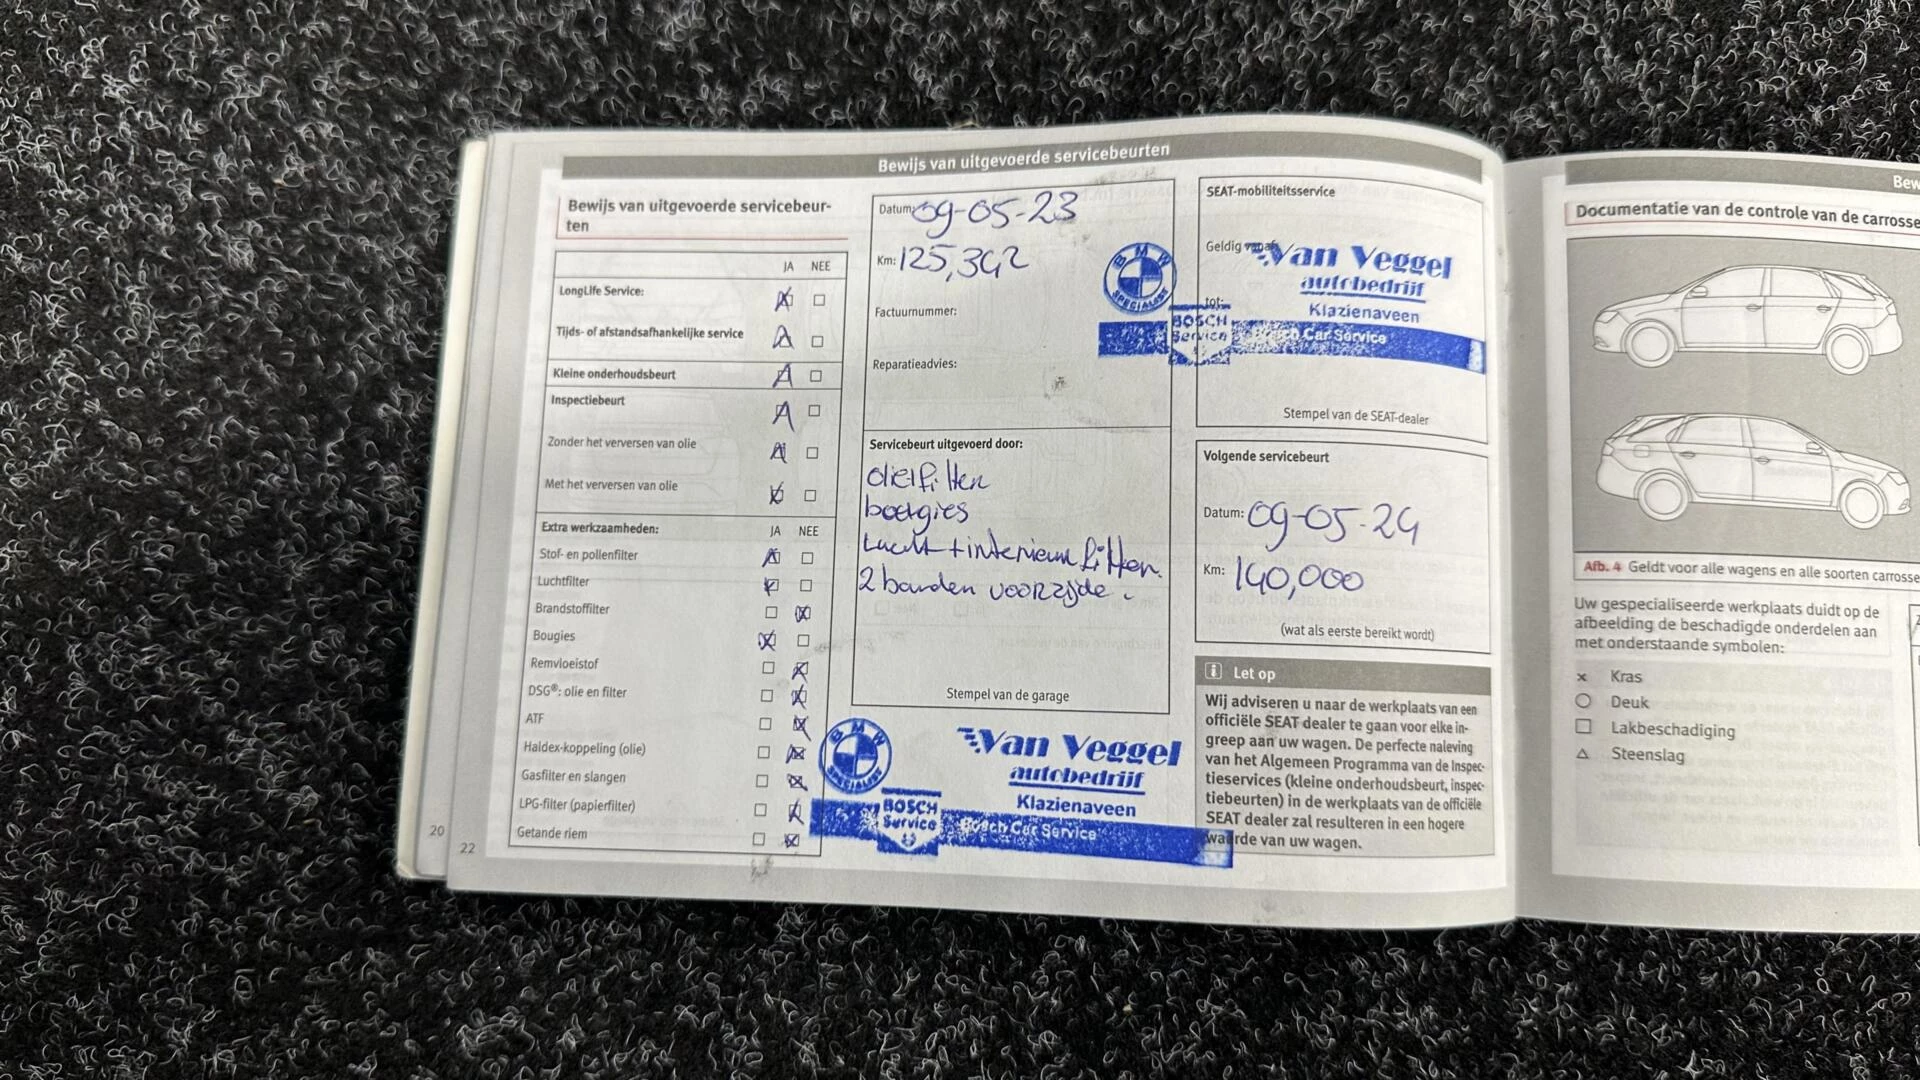 Bewijs van uitgevoerde servicebeurten
Bewijs van uitgevoerde servicebeur-
ten
JA NEE
LongLife Service:
Tijds- of afstandsafhankelijke service
Kleine onderhoudsbeurt
Inspectiebeurt
Zonder het verversen van olie
Met het verversen van olie
Extra werkzaamheden: JA NEE
Stof- en pollenfilter
Luchtfilter
Brandstoffilter
Bougies
Remvloeistof
DSG®: olie en filter
ATF
Haldex-koppeling (olie)
Gasfilter en slangen
LPG-filter (papierfilter)
Getande riem
20
22
Datum: 09-05-23
Km: 125,392
Factuurnummer:
Reparatieadvies:
Servicebeurt uitgevoerd door:
boegies
Lucht + interieur filter.
2 banden voorzijde.
Stempel van de garage
BMW
SPECIALIST
Van Veggel
autobedrijf
Klazienaveen
BOSCH
Service
Bosch Car Service
SEAT-mobiliteitsservice
Geldig vanaf:
tot:
BMW
SPECIALIST
Van Veggel
autobedrijf
Klazienaveen
BOSCH
Service
Bosch Car Service
Stempel van de SEAT-dealer
Volgende servicebeurt
Datum: 09-05-24
Km: 140,000
(wat als eerste bereikt wordt)
i Let op
Wij adviseren u naar de werkplaats van een
officiële SEAT dealer te gaan voor elke in-
greep aan uw wagen. De perfecte naleving
van het Algemeen Programma van de Inspec-
tieservices (kleine onderhoudsbeurt, inspec-
tiebeurten) in de werkplaats van de officiële
SEAT dealer zal resulteren in een hogere
waarde van uw wagen.
Bew
Documentatie van de controle van de carrosse
Afb. 4 Geldt voor alle wagens en alle soorten carrosse
Uw gespecialiseerde werkplaats duidt op de
afbeelding de beschadigde onderdelen aan
met onderstaande symbolen:
× Kras
○ Deuk
□ Lakbeschadiging
△ Steenslag